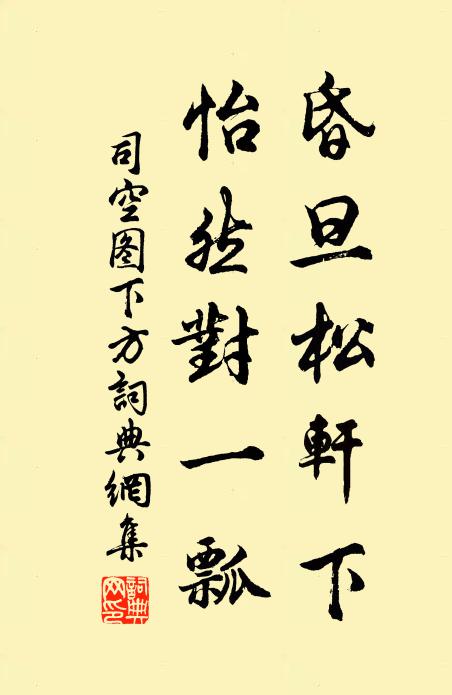 昏旦松軒下
怡然對一瓢
司空图下方詞典網集
詞典网印